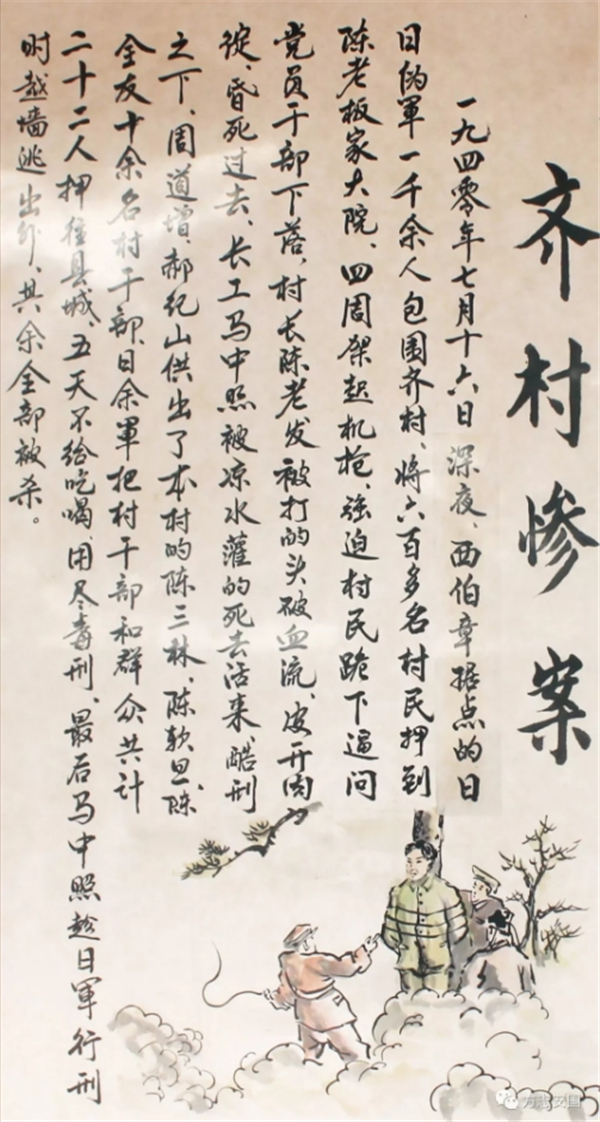 齐村惨案
一九四零年七月十六日深夜、西伯章据点的日
日伪軍一千余人包围齐村、将六百多名村民押到
陈老板家大院、四周架起机枪、强迫村民跪下逼问
党员干部下落，村长陈老发被打的头破血流、皮开肉
绽、昏死过去、长工马中照被凉水灌的死去活来、酷刑
之下，周道增、郝纪山供出了本村的陈三林、陈软旦、陈
全友十余名村干部、日余軍把村干部和群众共计
二十二人押往县城、五天不给吃喝、用尽毒刑、最后马中照趁日軍行刑
时越墙逃出外、其余全部被杀。
方志安国